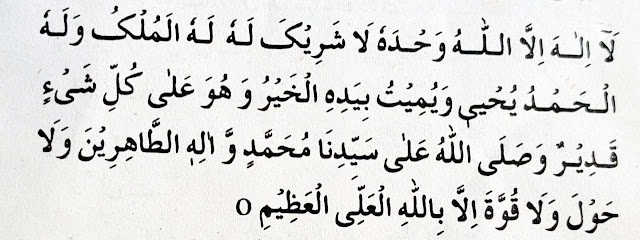 لَآ اِلٰهَ اِلَّا اللّٰهُ وَحْدَهٗ لَا شَرِيْكَ لَهٗ لَهُ الْمُلْكُ وَلَهُ
الْحَمْدُ يُحْيِىْ وَيُمِيْتُ بِيَدِهِ الْخَيْرُ وَ هُوَ عَلٰى كُلِّ شَىْءٍ
قَدِيْرٌ وَصَلَى اللّٰهُ عَلٰى سَيِّدِنَا مُحَمَّدٍ وَّ اٰلِهِ الطَّاهِرِيْنَ وَلَا
حَوْلَ وَلَا قُوَّةَ اِلَّا بِاللّٰهِ الْعَلِّى الْعَظِيْمِ ٥